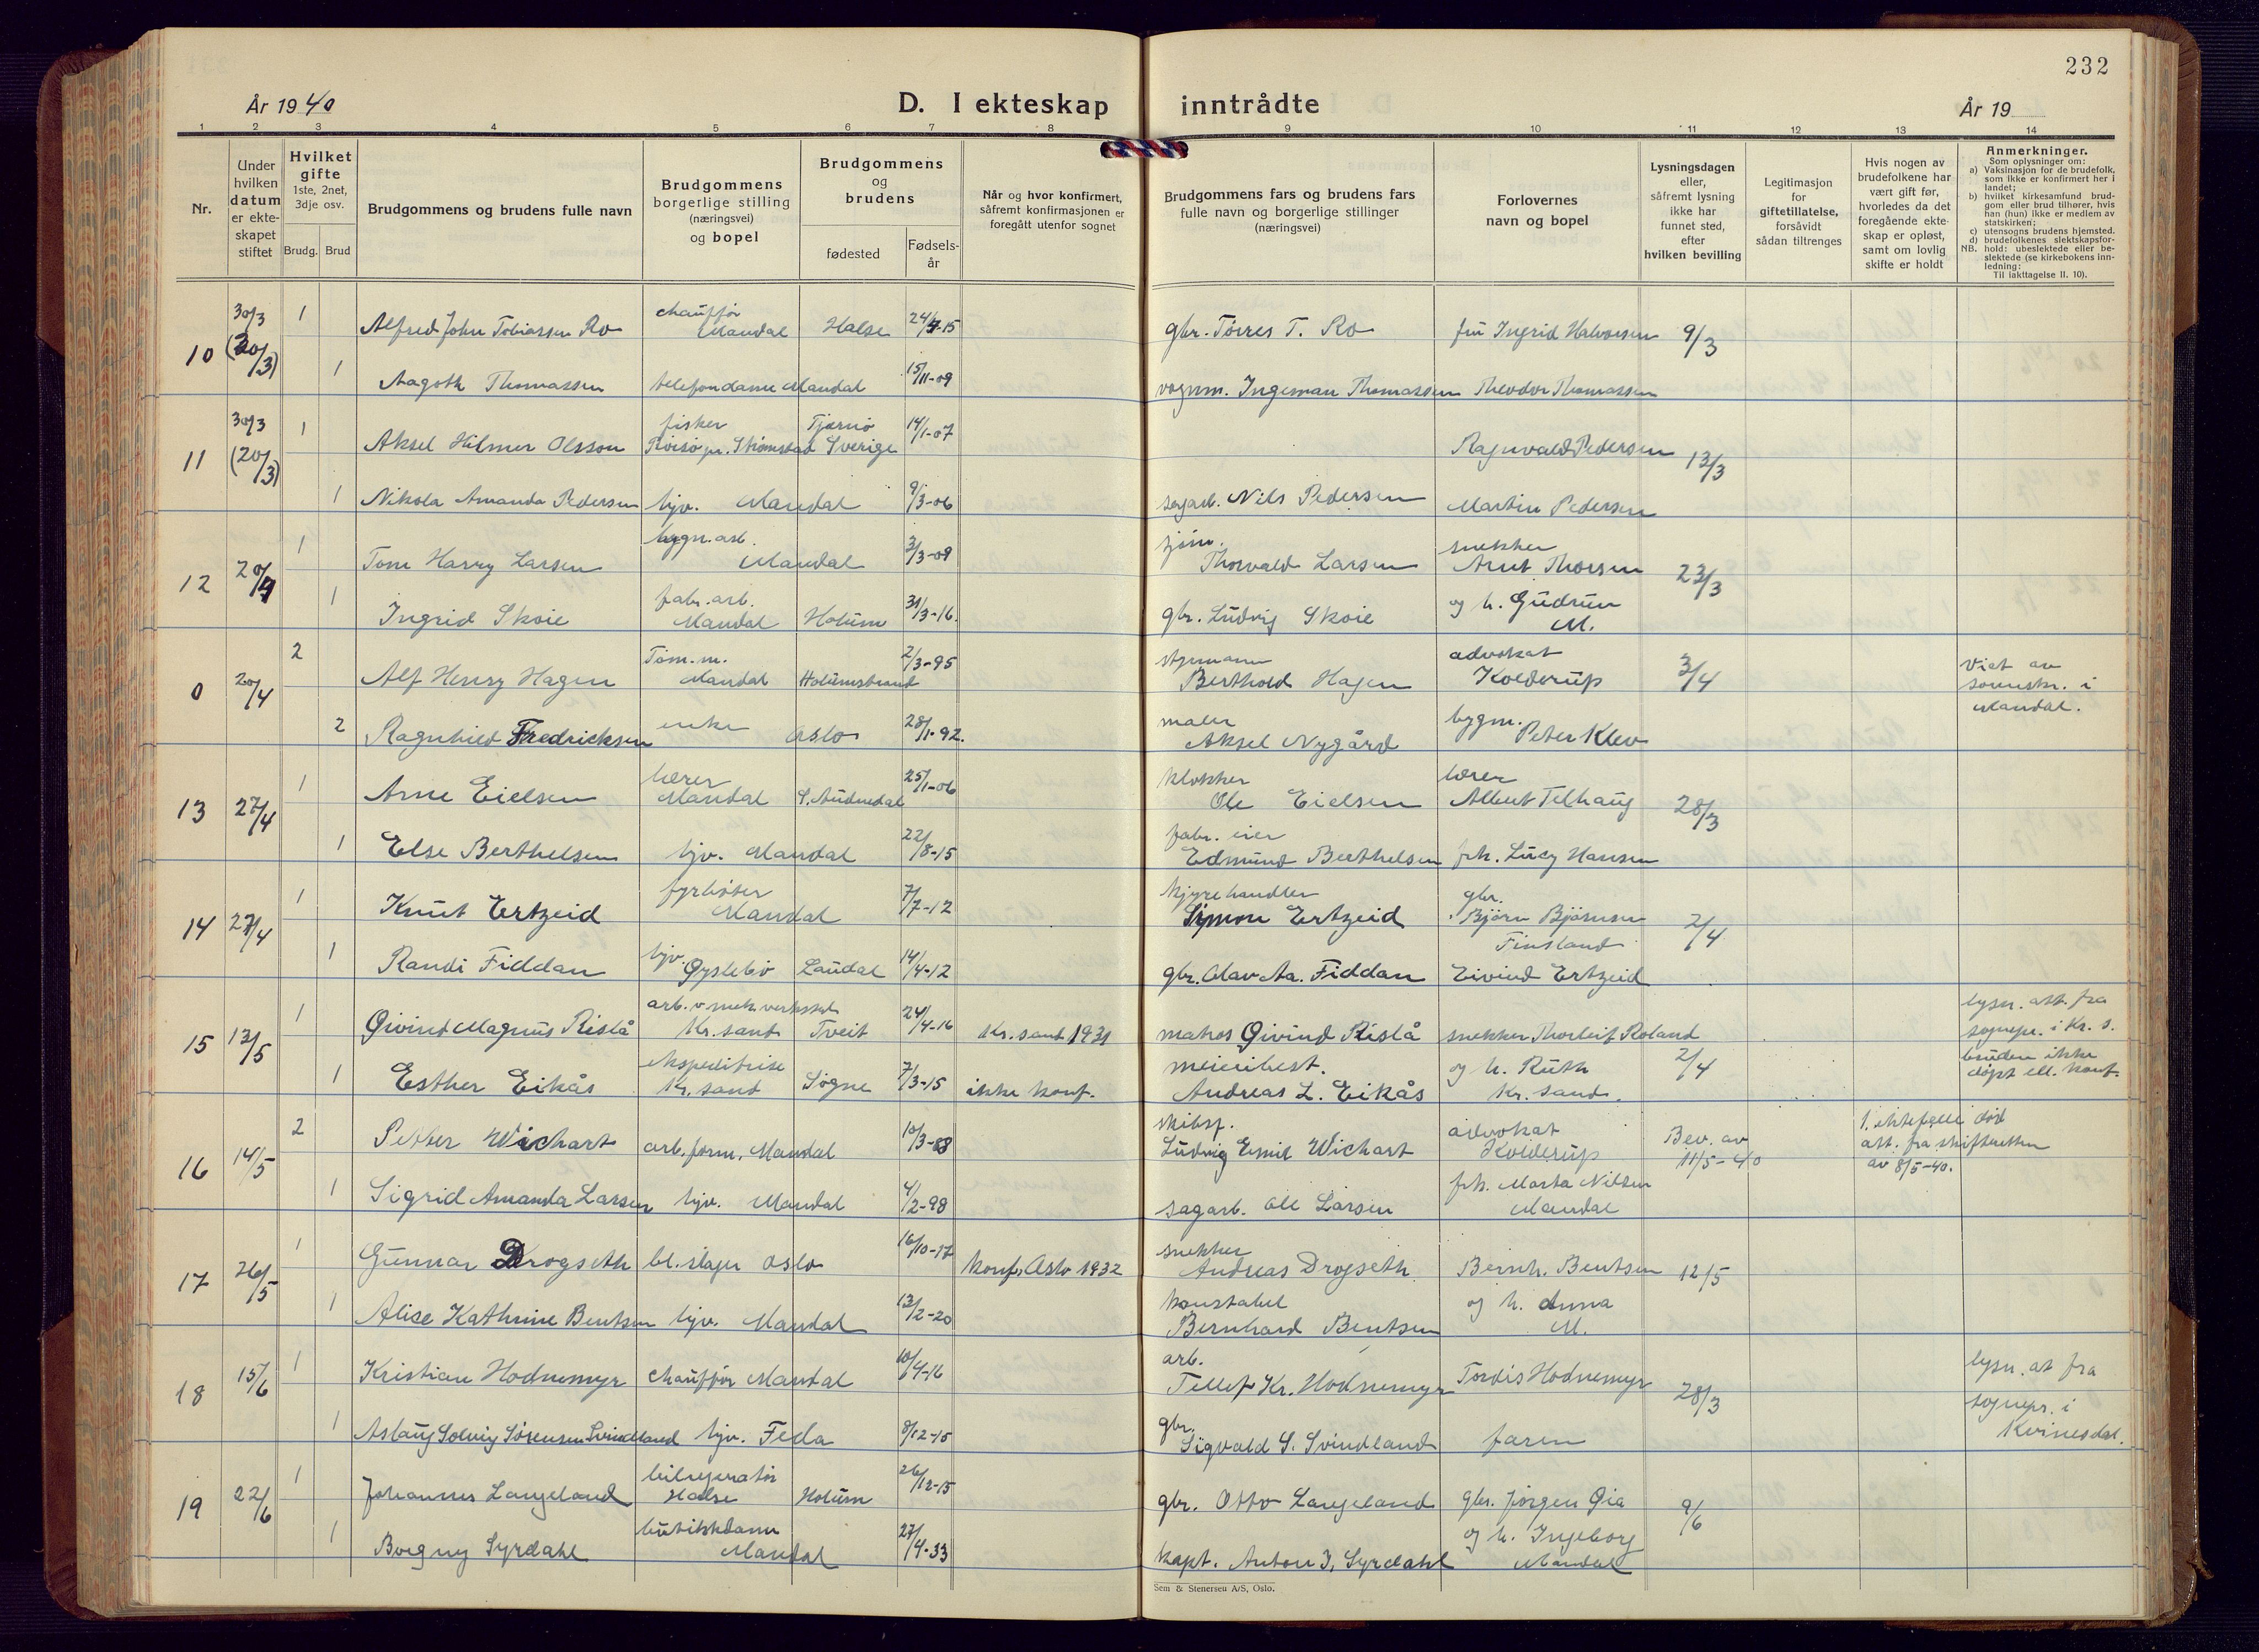 232
År 1940
D. I ekteskap inntrådte
År 19
1 2 3 4 5 6 7 8 9 10 11 12 13 14
Nr.
Under hvilken datum er ekteskapet stiftet
Hvilket gifte
1ste, 2net, 3dje osv.
Brudg. Brud
Brudgommens og brudens fulle navn
Brudgommens borgerlige stilling (næringsvei) og bopel
Brudgommens og brudens
fødested
Fødselsår
Når og hvor konfirmert, såfremt konfirmasjonen er foregått utenfor sognet
Brudgommens fars og brudens fars fulle navn og borgerlige stillinger (næringsvei)
Forlovernes navn og bopel
Lysningsdagen eller, såfremt lysning ikke har funnet sted, efter hvilken bevilling
Legitimasjon for giftetillatelse, forsåvidt sådan tiltrenges
Hvis nogen av brudefolkene har vært gift før, hvorledes da det foregående ekteskap er opløst, samt om lovlig skifte er holdt
Anmerkninger.
Som oplysninger om:
a) Vaksinasjon for de brudefolk, som ikke er konfirmert her i landet;
b) hvilket kirkesamfund brudgom eller brud tilhører, hvis han (hun) ikke er medlem av statskirken;
c) utensogns brudens hjemsted.
d) brudefolkenes slektskapsforhold: ubeslektede eller beslektede (se kirkebokens innledning:
NB. Til iakttagelse II. 10).
10 30/3 (20/3) 1 Alfred John Tobiassen Ro chauffør Mandal Halse 24/7-15 gbr. Tørres T. Ro fru Ingrid Halvorsen 9/3
1 Aagoth Thomassen telefondame Mandal 15/11-09 vognm. Ingeman Thomassen Theodor Thomassen
11 30/3 (20/3) 1 Aksel Hilmer Olsson fisker pr. Strømstad Tjærnø Sverige 14/1-07 Ragnvald Pedersen 13/3
1 Nikola Amanda Pedersen hjv. Mandal 9/3-06 sagarb. Nils Pedersen Martin Pedersen
12 20/4 1 Tom Harry Larsen bygn. arb. Mandal 3/3-09 sjøm. Thorvald Larsen snekker Arnt Thorsen 23/3
1 Ingrid Skoie fabr. arb. Mandal Holum 31/3-16. gbr. Ludvig Skoie og h. Gudrun M.
0 20/4 2 Alf Henry Hagen Tøm. m. Mandal Holumsbrand 2/3-95 styrmann Berthold Hagen advokat Kolderup 3/4 Viet av sorenskr. i Mandal.
2 Ragnhild Fredricksen enke Oslo 28/1-92. maler Aksel Nygård bygm. Peter Klev
13 27/4 1 Arne Eielsen lærer Mandal S. Audnedal 25/1-06 klokker Ole Eielsen lærer Albert Telhaug 28/3
1 Else Berthelsen hjv. Mandal 22/8-15 fabr. eier Edmund Berthelsen frk. Lucy Hansen
14 27/4 1 Knut Ertzeid fyrbøter Mandal 7/7-12 Simon Ertzeid gbr. Bjørn Bjørnsen Finsland 2/4
1 Randi Fiddan hjv. Øyslebø Laudal 14/4-12 gbr. Olav Aa. Fiddan Eivind Ertzeid
15 13/5 1 Øivind Magnus Rislå arb. v. mek. verksted Kr. sand Tveit 24/4-16 Kr. sand 1931 matros Øivind Rislå snekker Thorleif Roland 2/4 lysn. att. fra sognepr. i Kr. s.
1 Esther Eikås ekspeditrise Kr. sand Søgne 7/3-15 ikke konf. meieribest. Andreas L. Eikås og h. Ruth Kr. sand. bruden ikke døpt ell. konf.
16 14/5 2 Petter Wichart arb. form. Mandal 10/3-88 skibsf. Ludvig Emil Wichart advokat Kolderup Bev. av 11/5-40 1. ektefelle død att. fra skifteretten av 8/5-40.
1 Sigrid Amanda Larsen hjv. Mandal 4/2-98 sagarb. Ole Larsen frk. Marta Nilsen Mandal
17 26/5 1 Gunnar Drogseth bl. slager Oslo 16/10-17 konf. Oslo 1932 snekker Andreas Drogseth Bernh. Bentsen 12/5
1 Alice Kathrine Bentsen hjv. Mandal 13/2-20 konstabel Bernhard Bentsen og h. Anna M.
18 15/6 1 Kristian Hodnemyr chauffør Mandal 10/4-16 arb. Tellef Kr. Hodnemyr Tordis Hodnemyr 28/3 lysn. at fra sognepr. i Kvinesdal.
1 Aslaug Solveig Sørensen Svindland hjv. Feda 8/12-15 gbr. Sigvald S. Svindland faren
19 22/6 1 Johannes Langeland bilreperatør Halse Holum 26/12-15 gbr. Otto Langeland gbr. Jørgen Øia 9/6
1 Borgny Syrdahl butikkdame Mandal 27/4-33 kapt. Anton J. Syrdahl og h. Ingeborg Mandal
Sem & Stenersen A/S, Oslo.